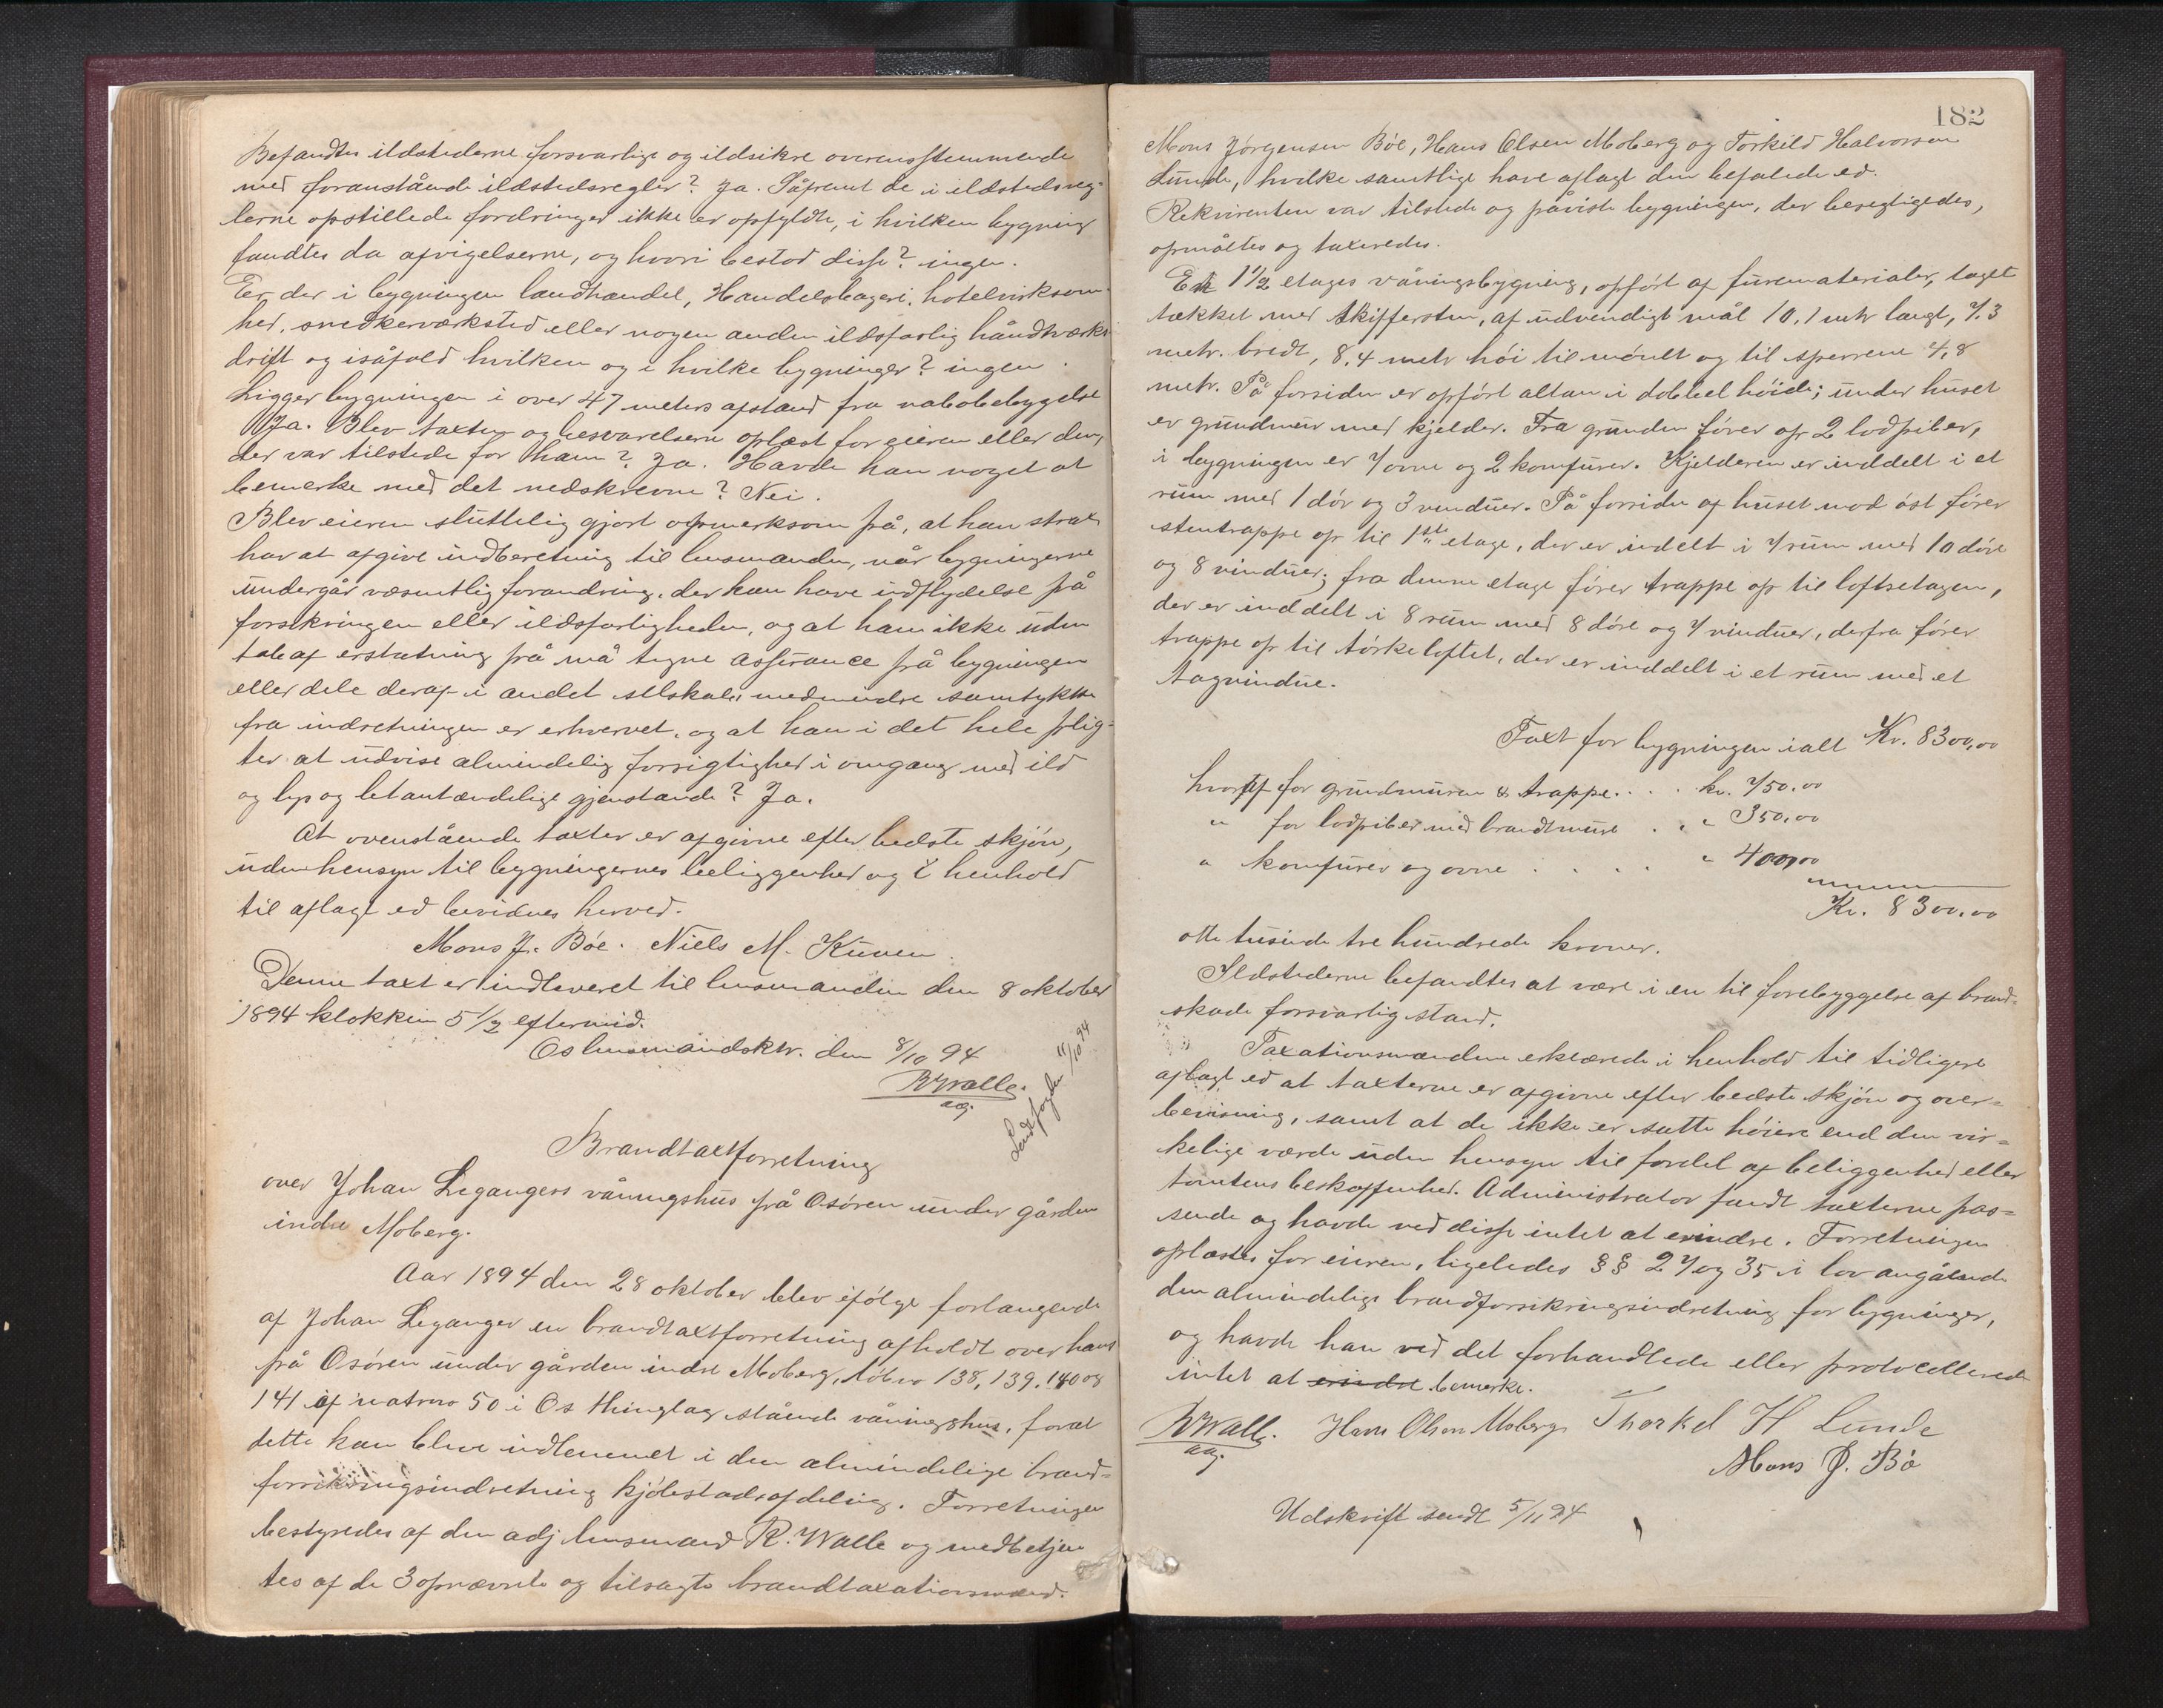 Befandtes ildstederne forsvarlige og ildsikre overensstemmende
med foranstående ildstedsregler? Ja. Såfremt de i ildstedsreg-
lerne opstillede fordringer ikke er opfyldte, i hvilken bygning
fandtes da afvigelserne, og hvori bestod disse? ingen.
Er der i bygningen landhandel, Handelsbageri, hotelvirksom-
hed, snedkerværksted eller nogen anden ildsfarlig håndværks-
drift og isåfald hvilken og i hvilke bygninger? ingen.
Ligger bygningen i over 47 meters afstand fra nabobebygelse
Ja. Blev taxten og besvarelserne oplæst for eieren eller den,
der var tilstede for ham? Ja. Havde han noget at
bemerke med det nedskrevne? Nei.
Blev eieren sluttelig gjort opmerksom på, at han strax
har at afgive indberetning til lensmanden, når bygningerne
undergår væsentlig forandring, der kan have indflydelse på
forsikringen eller ildsfarligheden, og at han ikke uden
tab af erstatning på må tegne assurance på bygningen
eller dele deraf i andet selskab, medmindre samtykke
fra indretningen er erhvervet, og at han i det hele plig-
ter at udvise almindelig forsigtighed i omgang med ild
og lys og letantændelige gjenstande? Ja.
At ovenstående taxter er afgivne efter bedste skjøn,
uden hensyn til bygningernes beliggenhed og i henhold
til aflagt ed bevidnes herved.
Mons J. Bøe. Niels M. Kuven.
Denne taxt er indleveret til lensmanden den 8 oktober
1894 klokken 5 1/2 eftermid.
Os lensmandsktr. den 8/10 94
RWalle.
adj.
Landfogden 11/10 94
Brandtaxtforretning
over Johan Legangers våningshus på Osøren under gården
indre Moberg.
Aar 1894 den 28 oktober blev ifølge forlangende
af Johan Leganger en brandtaxtforretning afholdt over hans
på Osøren under gården indre Moberg, løbno 138, 139, 140 og
141 af matrno 50 i Os thinglag stående våningshus, forat
dette kan blive indlemmet i den almindelige brand-
forsikringsindretning kjøbstadsafdeling. Forretningen
bestyredes af den adj lensmand R. Walle og medbetjen
tes af de 3 opnævnte og tilsagte brandtaxationsmænd.
182
Mons Jørgensen Bøe, Hans Olsen Moberg og Torkild Halvorsen
Lunde, hvilke samtlige have aflagt den befalede ed.
Rekvirenten var tilstede og påviste bygningen, der besigtigedes,
opmåltes og taxeredes.
En 1 1/2 etages våningsbygning, opført af furematerialer, taget
tækket med skiffersten, af udvendigt mål 10,1 mtr langt, 7.3
metr. bredt, 8.4 metr høi til mønet og til sperrene 4,8
metr. På forsiden er opført altan i dobbel høide; under huset
er grundmur med kjelder. Fra grunden fører op 2 lodpiber,
i bygningen er 7 ovne og 2 komfurer. Kjelderen er inddelt i et
rum med 1 dør og 3 vinduer. På forsiden af huset mod øst fører
stentrappe op til 1ste etage, der er indelt i 7 rum med 10 døre
og 8 vinduer; fra denne etage fører trappe op til loftsetagen,
der er inddelt i 8 rum med 8 døre og 7 vinduer, derfra fører
trappe op til tørkeloftet, der er inddelt i et rum med et
tagvindue.
Taxt for bygningen ialt Kr. 8300,00
hvoraf for grundmuren & trappe . . . kr. 750.00
" for lodpiber med brandmure . " " 350,00
" komfurer og ovne . . . . " 400,00
Kr. 8300.00
otte tusinde tre hundrede kroner.
Ildstederne befandtes at være i en til forebyggelse af brand-
skade forsvarlig stand.
Taxationsmændene erklærede i henhold til tidligere
aflagt ed at taxterne er afgivne efter bedste skjøn og over-
bevisning, samt at de ikke er satte høiere end den vir-
kelige værde uden hensyn til fordel af beliggenhed eller
tomtens beskaffenhed. Administrator fandt taxterne pas-
sende og havde ved disse intet at erindre. Forretningen
oplæstes for eieren, ligeledes §§ 27 og 35 i lov angående
den almindelige brandforsikringsindretning for bygninger,
og havde han ved det forhandlede eller protocollerede
intet at erindre bemerke.
RWalle. Hans Olsen Moberg Thorkel H Lunde
adj.
Mons J. Bö
Udskrift sendt 5/11 94